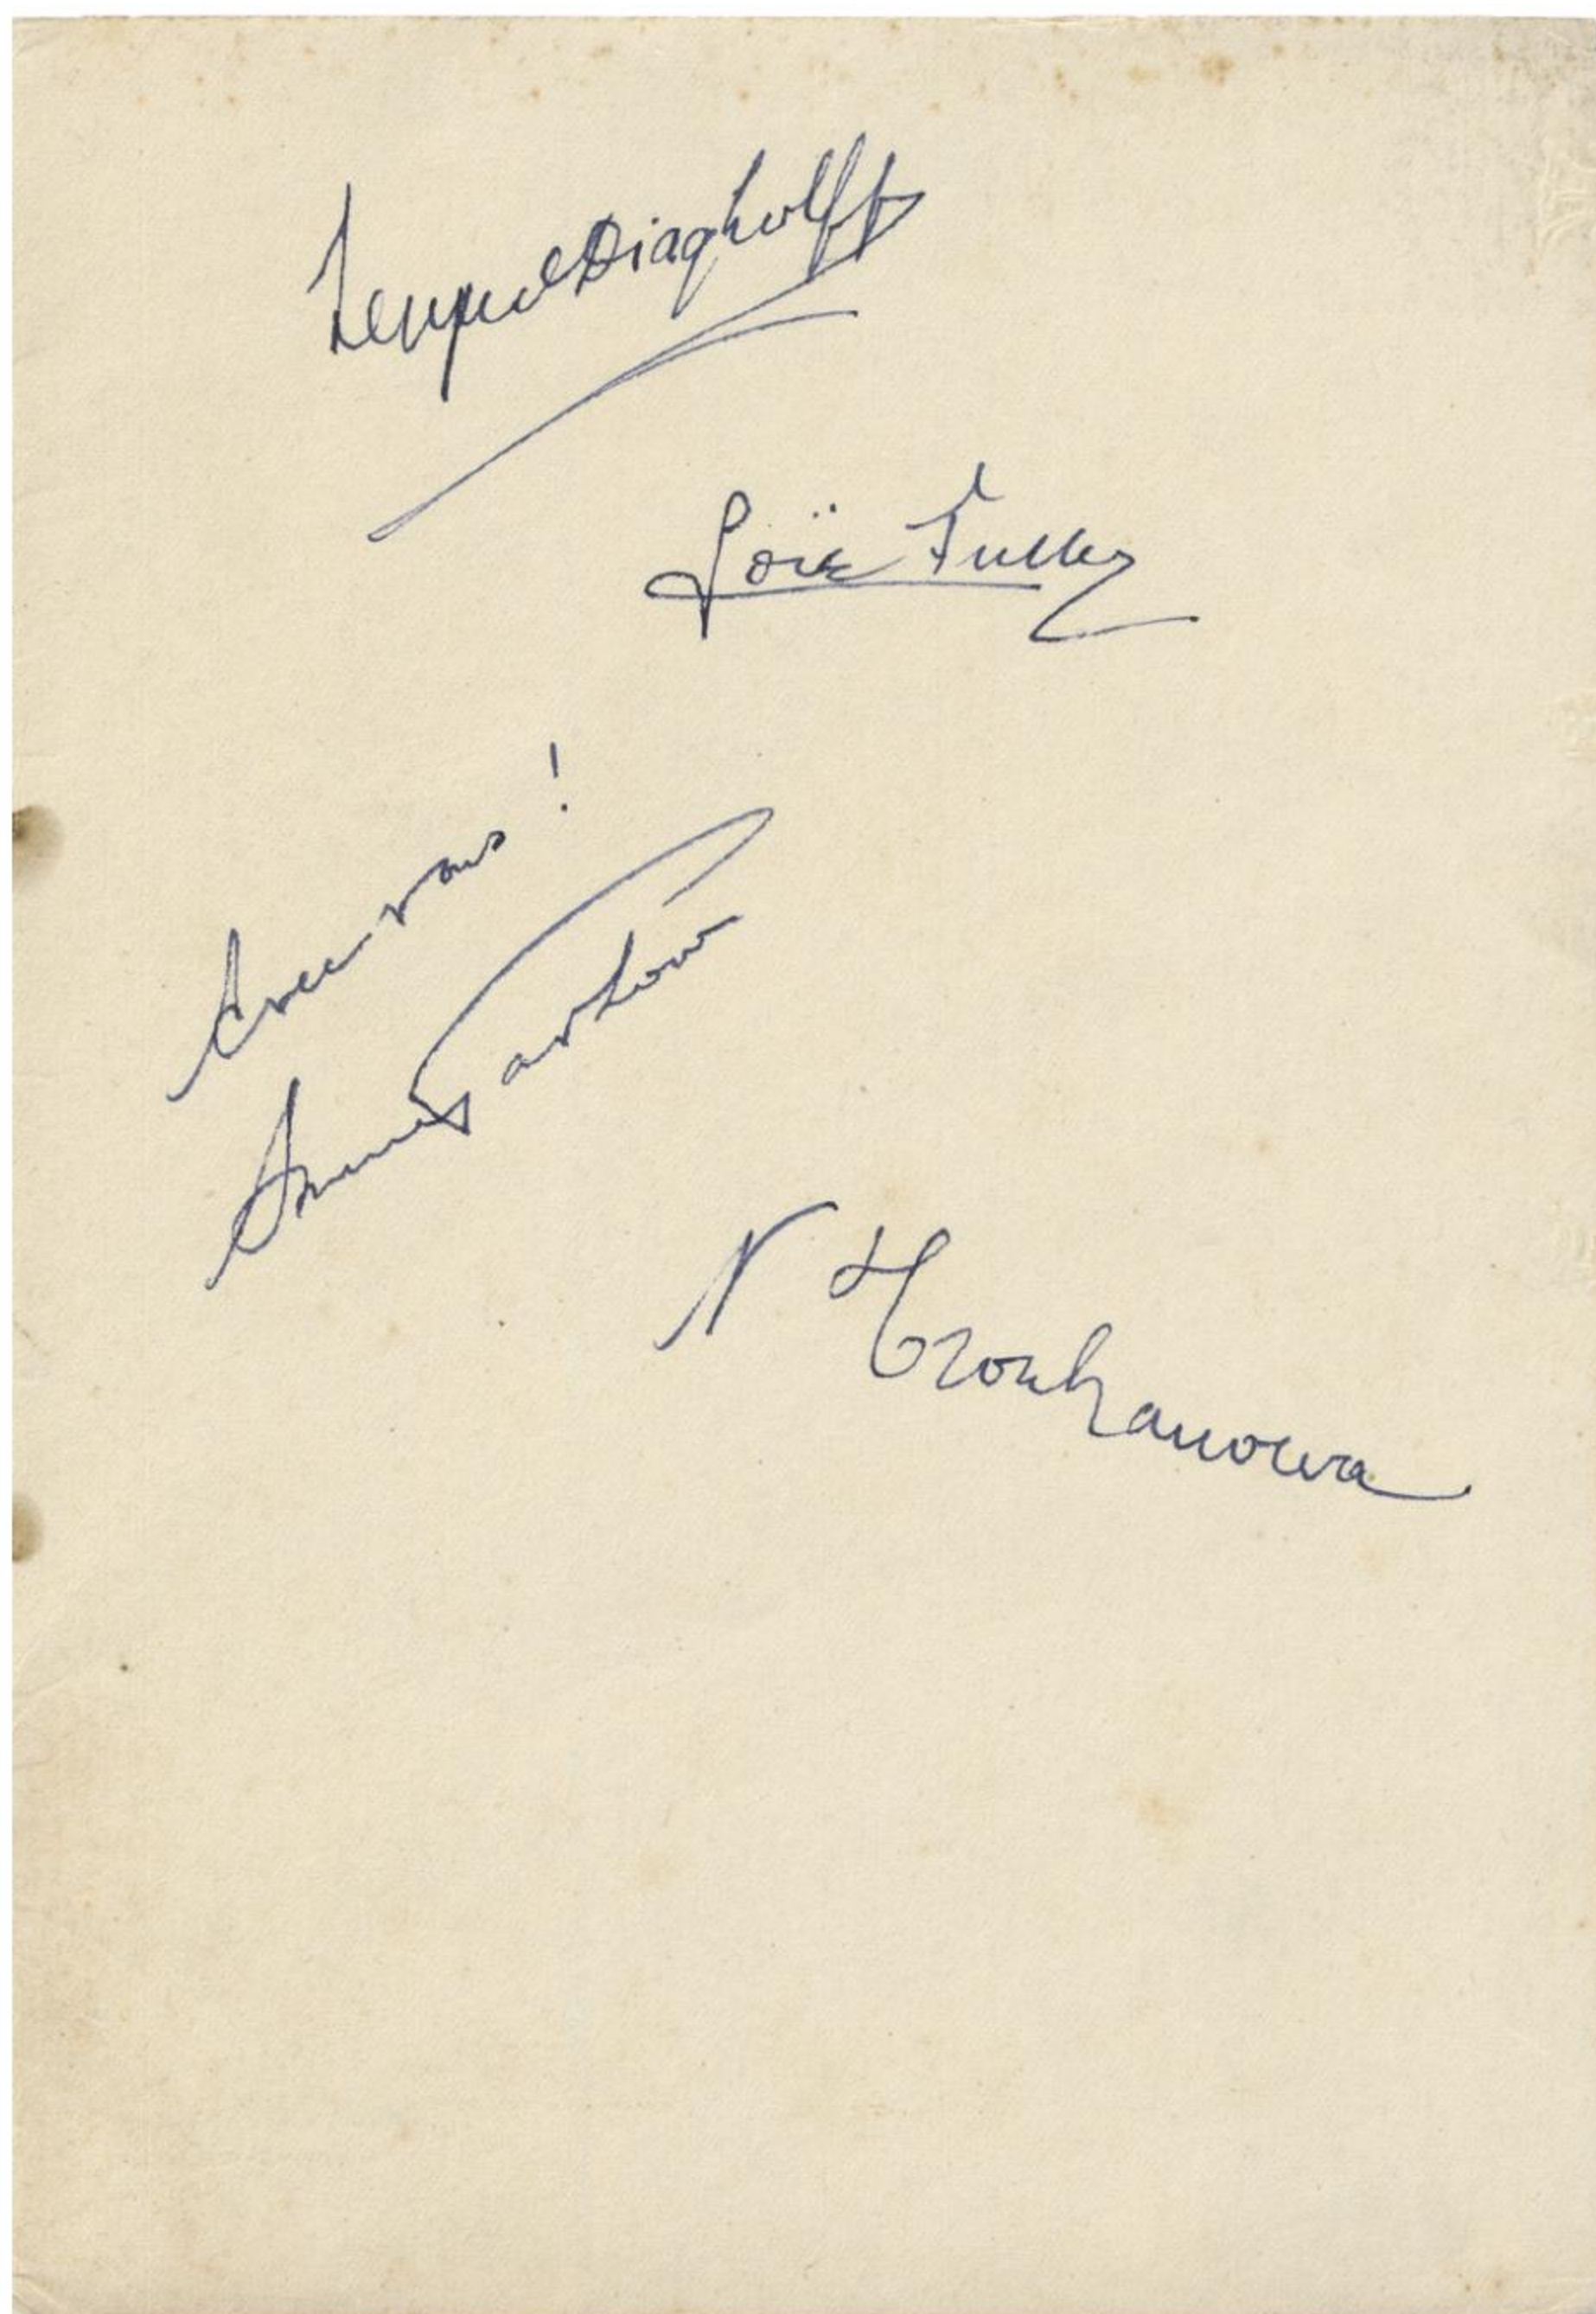 Serge de Diaghileff
Loïe Fuller
Avec vous !
Anna Pavlova
N Trouhanowa